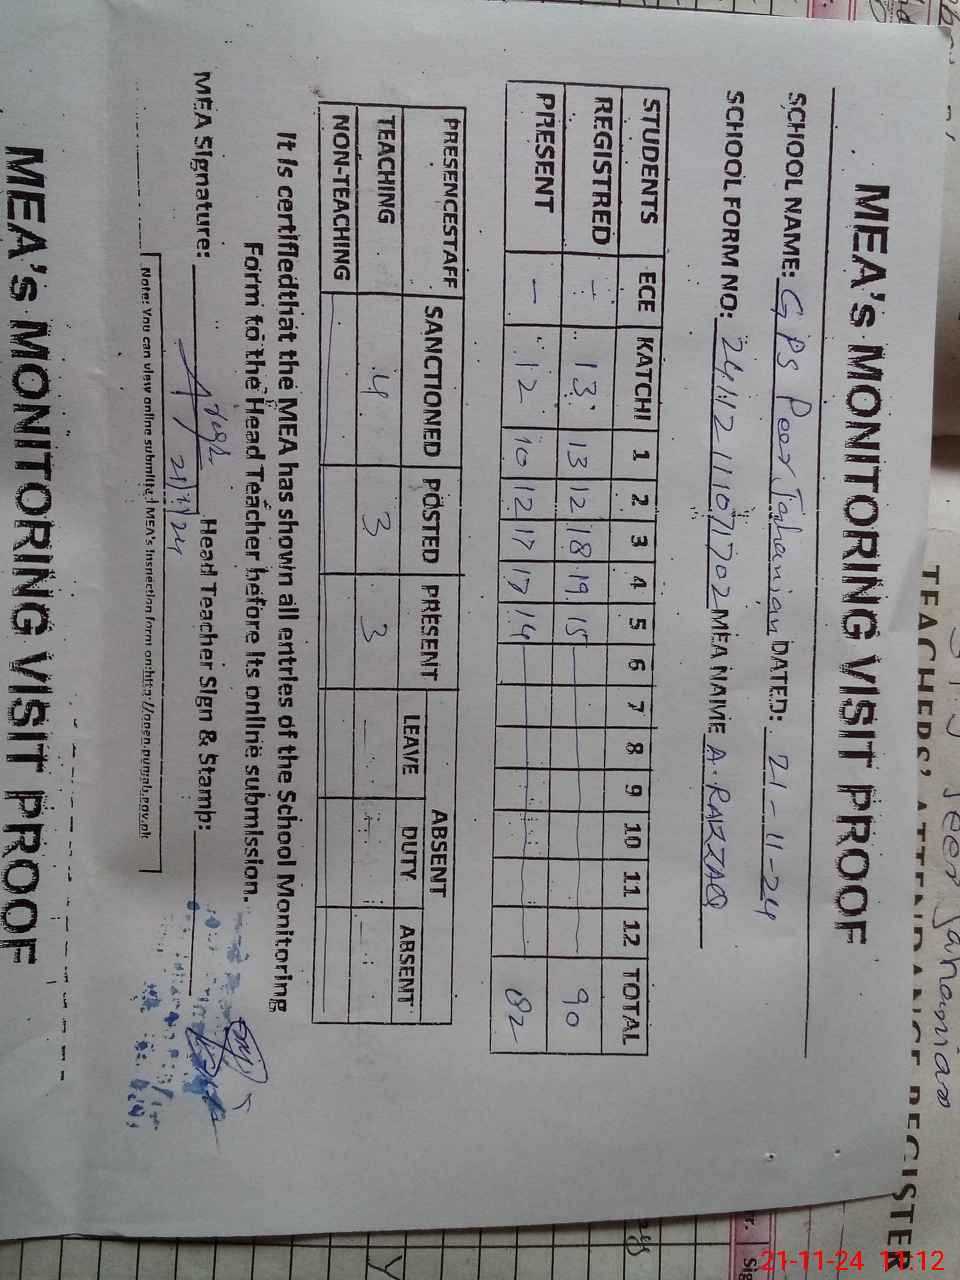 MEA's MONITORING VISIT PROOF
SCHOOL NAME: GPS Peer Jahanian DATED: 21-11-24
SCHOOL FORM NO: MEA NAME A. RAZZAQ
STUDENTS ECE KATCHI 1 2 3 4 5 6 7 8 9 10 11 12 TOTAL
REGISTRED - 13 13 12 18 19 15 90
PRESENT - 12 10 12 17 17 14 82
PRESENCESTAFF SANCTIONED POSTED PRESENT ABSENT
LEAVE DUTY ABSENT
TEACHING 4 3 3 - - -
NON-TEACHING
It is certifiedthat the MEA has shown all entries of the School Monitoring
Form to the Head Teacher before its online submission.
MEA Signature: 21/11/24 Head Teacher Sign & Stamp:
Note: You can view online submitted MEA's inspection form on:http://open.punjab.gov.pk
MEA's MONITORING VISIT PROOF
Peer Jahanian
TEACHERS' ATTENDANCE REGISTER
21-11-24 11:12